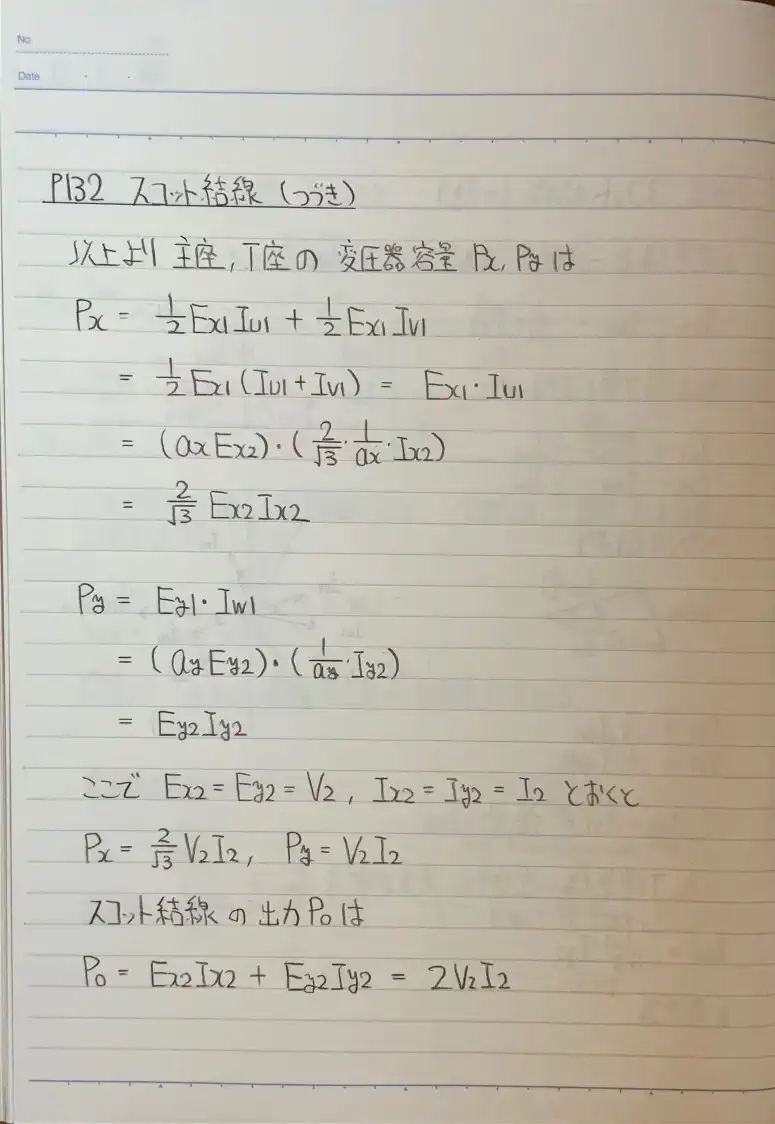 No.
Date ・ ・
P132 スコット結線 (つづき)
以上より 主座, T座の 変圧器容量 Px, Py は
Px = 1/2 Ex1 IU1 + 1/2 Ex1 IV1
= 1/2 Ex1 (IU1 + IV1) = Ex1・IU1
= (ax Ex2)・(2/√3・1/ax・Ix2)
= 2/√3 Ex2 Ix2
Py = Ey1・IW1
= (ay Ey2)・(1/ay・Iy2)
= Ey2 Iy2
ここで Ex2 = Ey2 = V2, Ix2 = Iy2 = I2 とおくと
Px = 2/√3 V2 I2, Py = V2 I2
スコット結線の出力 Po は
Po = Ex2 Ix2 + Ey2 Iy2 = 2V2 I2